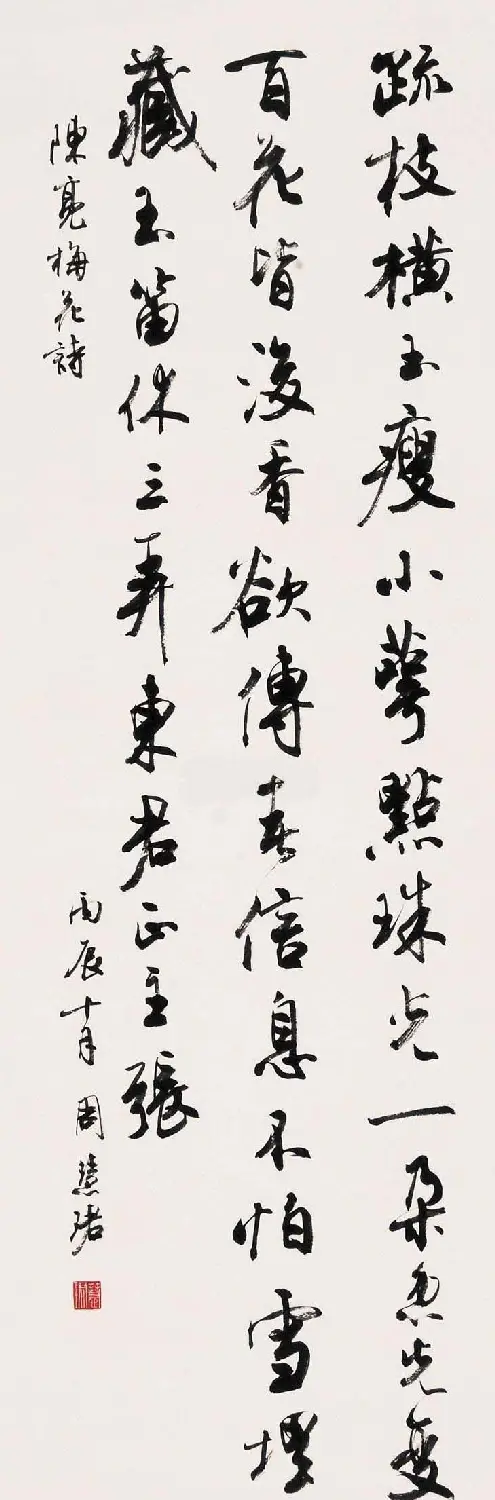 疏枝橫玉瘦小萼點珠光一朵忽先變
百花皆後香欲傳春信息不怕雪埋
藏玉笛休三弄東君正主張
陳亮梅花詩
丙辰十月周慧珺